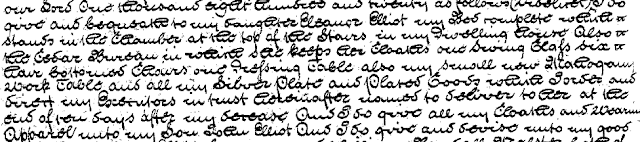 our Lord One thousand eight hundred and twenty as follows (Vizlicet) I do
give and bequeathe to my daughter Eleanor Elliot my Bed complete which
stands in the Chamber at the top of the Stairs in my Dwelling House Also
the Cedar Bureau in which she keeps her Cloaths one Swing Glass six
Hair bottomed Chairs one Dressing Table also my small new Mahogany
Work Table and all my Silver Plate and Plated Goods which I order and
direct my Executors in trust hereinafter named to deliver to her at the
end of ten days after my decease And I do give all my Cloaths and Wearing
Apparel unto my Son John Elliot And I do give and devise unto my good